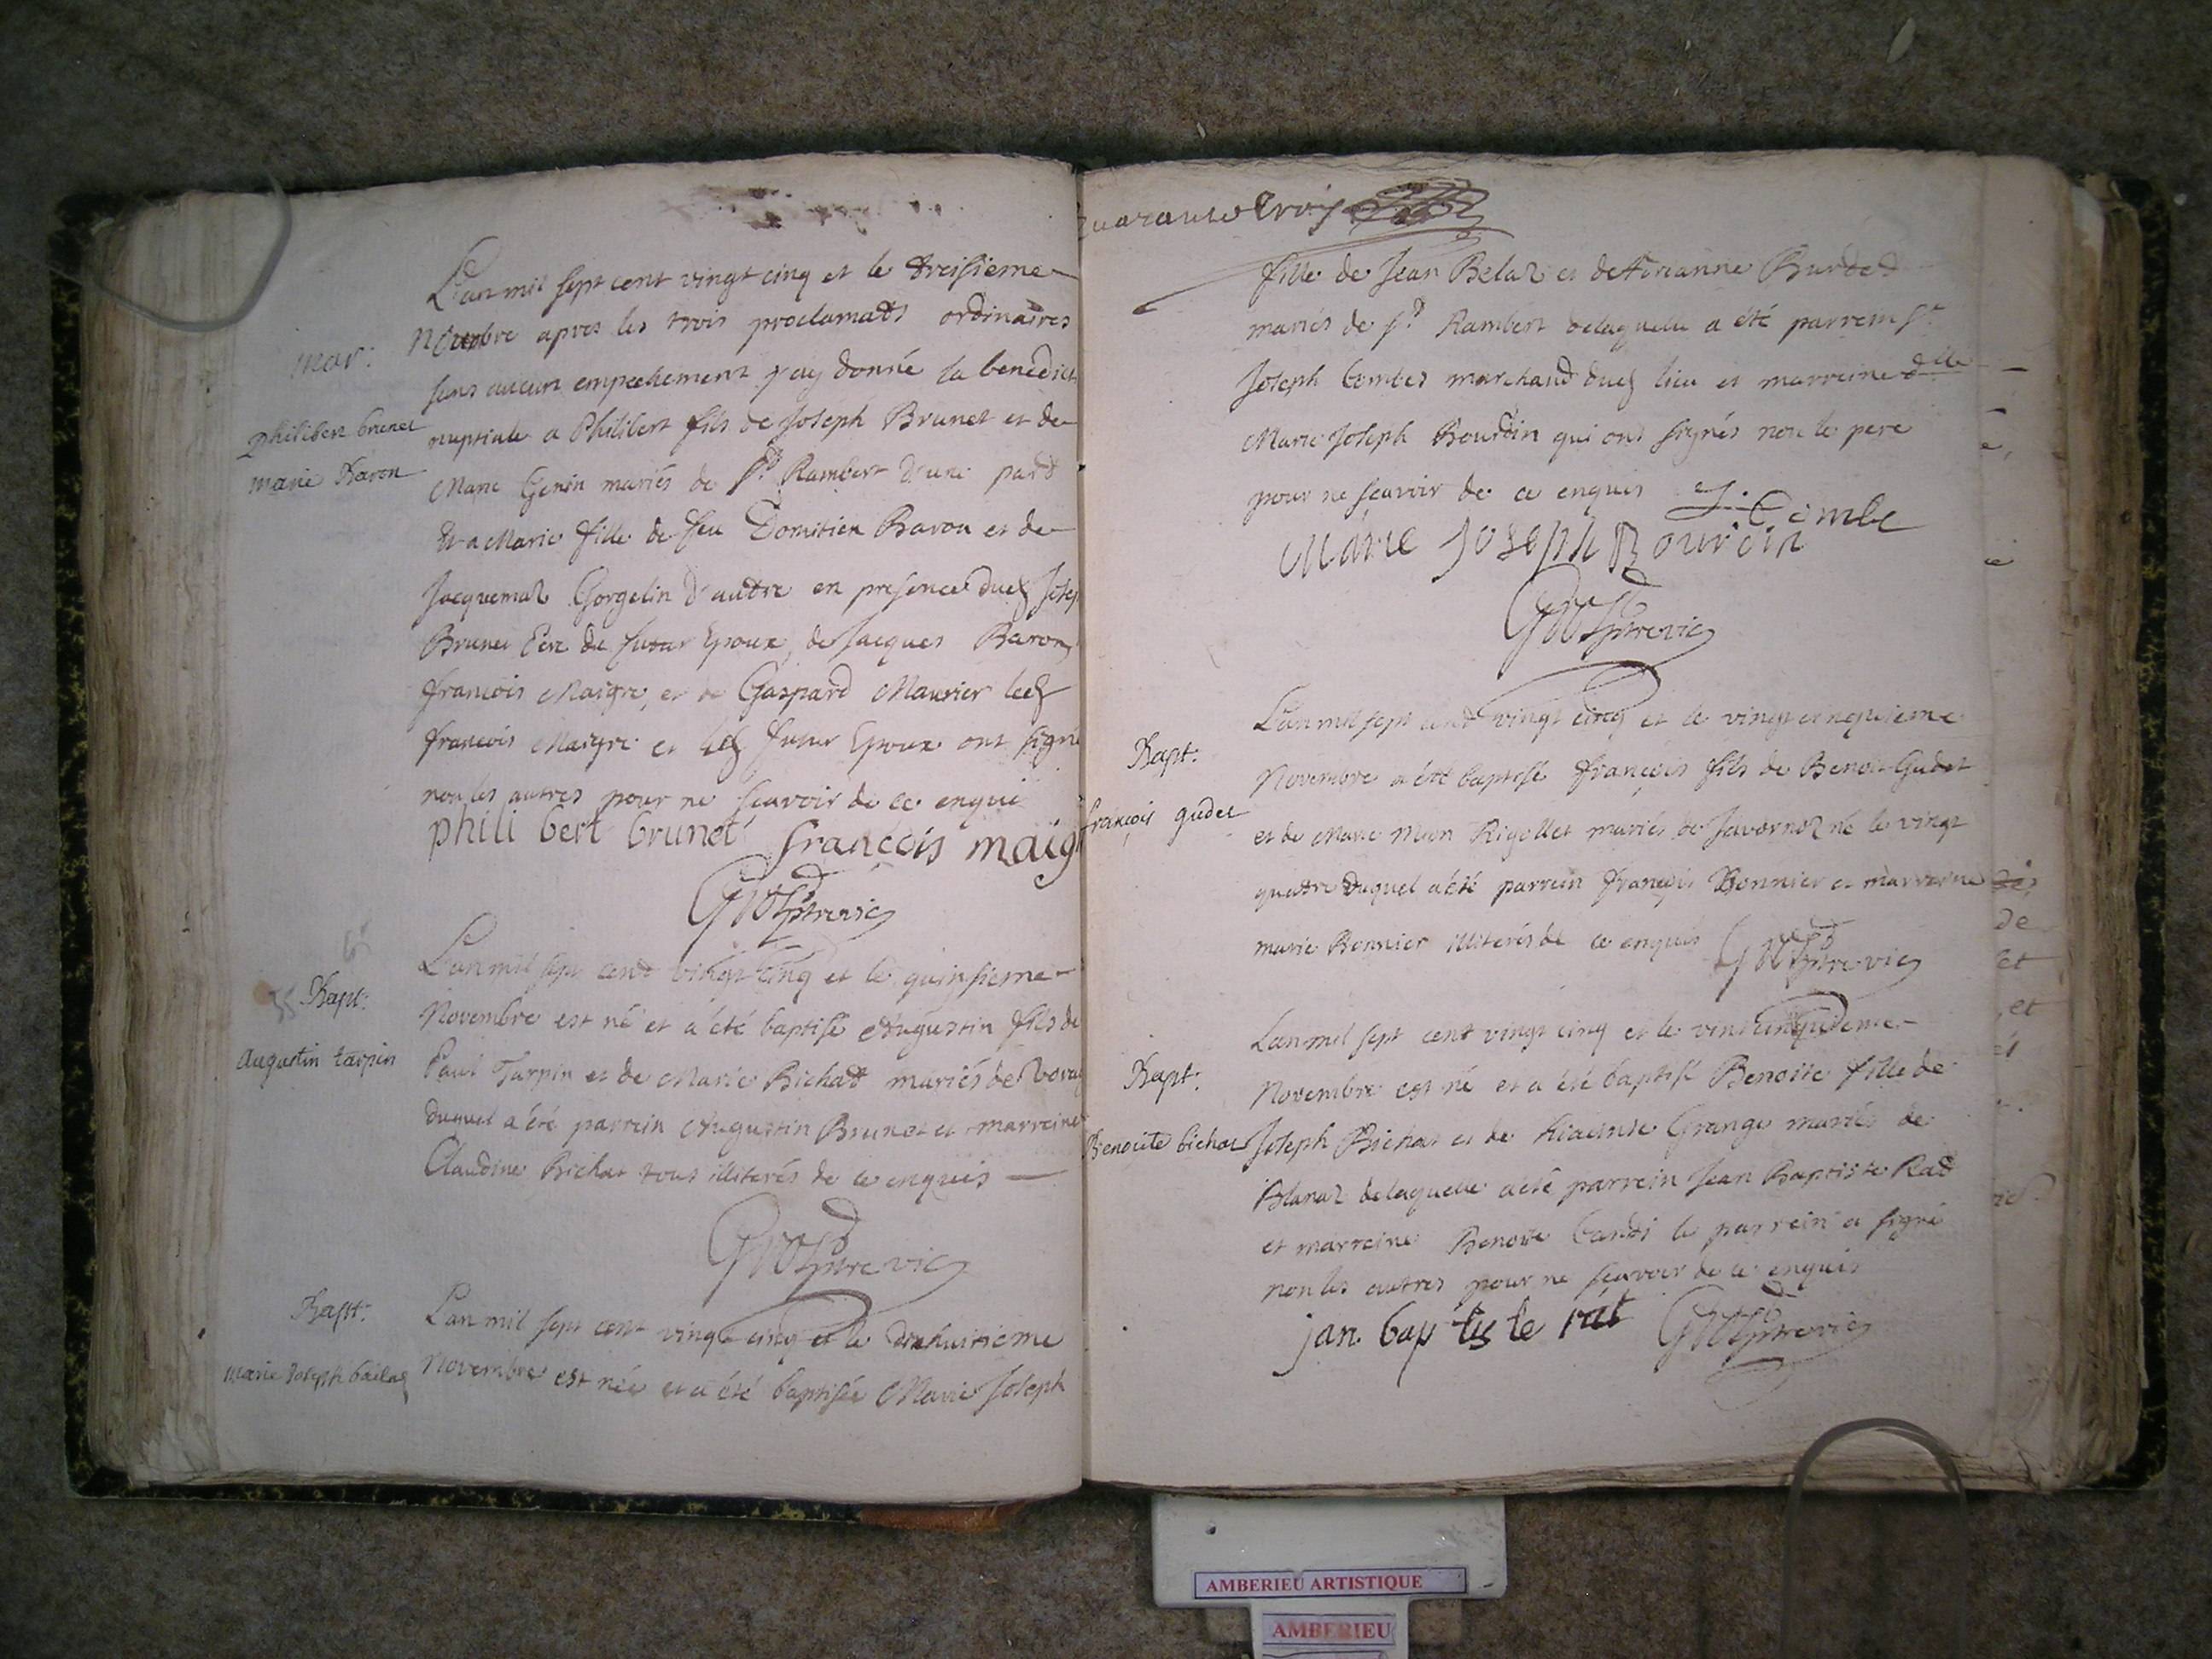 mar:
philibert brunet
marie Baron
L'an mil sept cent vingt cinq et le treisieme
Novembre apres les trois proclamats ordinaires
sans aucun empechement j'ay donné la benedict
nuptiale a Philibert fils de Joseph Brunet et de
Marie Genin mariés de st Rambert d'une part
et a Marie fille de feu Domitien Baron et de
Jacquemaz Gorgelin d'autre en presence dud Josep
Brunet Pere du futur Epoux, de Jacques Baron
françois Maigre, et de Gaspard Maurier led
françois Maigre et led futur Epoux ont signé
non les autres pour ne sçavoir de ce enquis
phili bert brunet françois maig
Bapt:
augustin tarpin
L'an mil sept cent vingt cinq et le quinsieme
Novembre est né et a été baptisé Augustin fils de
Paul Tarpin et de Marie Bichat mariés de
duquel a été parrein Augustin Brunet et marreine
Claudine Bichat tous illiterés de ce enquis
Bapt:
marie Joseph
L'an mil sept cent vingt cinq et le dixhuitieme
Novembre est née et a été baptisée Marie Joseph
quarante trois
fille de Jean Belaz et de Burdet
mariés de st Rambert delaquelle a été parrein sr
Joseph Combes marchand dud lieu et marreine dlle
Marie Joseph Bourdin qui ont signés non le pere
pour ne sçavoir de ce enquis J. Combe
Marie Joseph Bourdin
Bapt:
françois gudet
L'an mil sept cent vingt cinq et le vingt cinquieme
Novembre a été baptisé françois fils de Benoit Gudet
et de Marie Rigollet mariés de Javornoz né le vingt
quatre duquel a été parrein françois Bonnier et marreine
marie Bonnier illiterés de ce enquis
Bapt:
Benoite bichat
L'an mil sept cent vingt cinq et le vint cinquieme
Novembre est né et a été baptisé Benoite fille de
Joseph Bichat et de Grange mariés de
Blanaz delaquelle a été parrein Jean Baptiste Rat
et marreine Benoite le parrein a signé
non les autres pour ne sçavoir de ce enquis
jan baptiste rat
de
et
et
AMBERIEU ARTISTIQUE
AMBERIEU